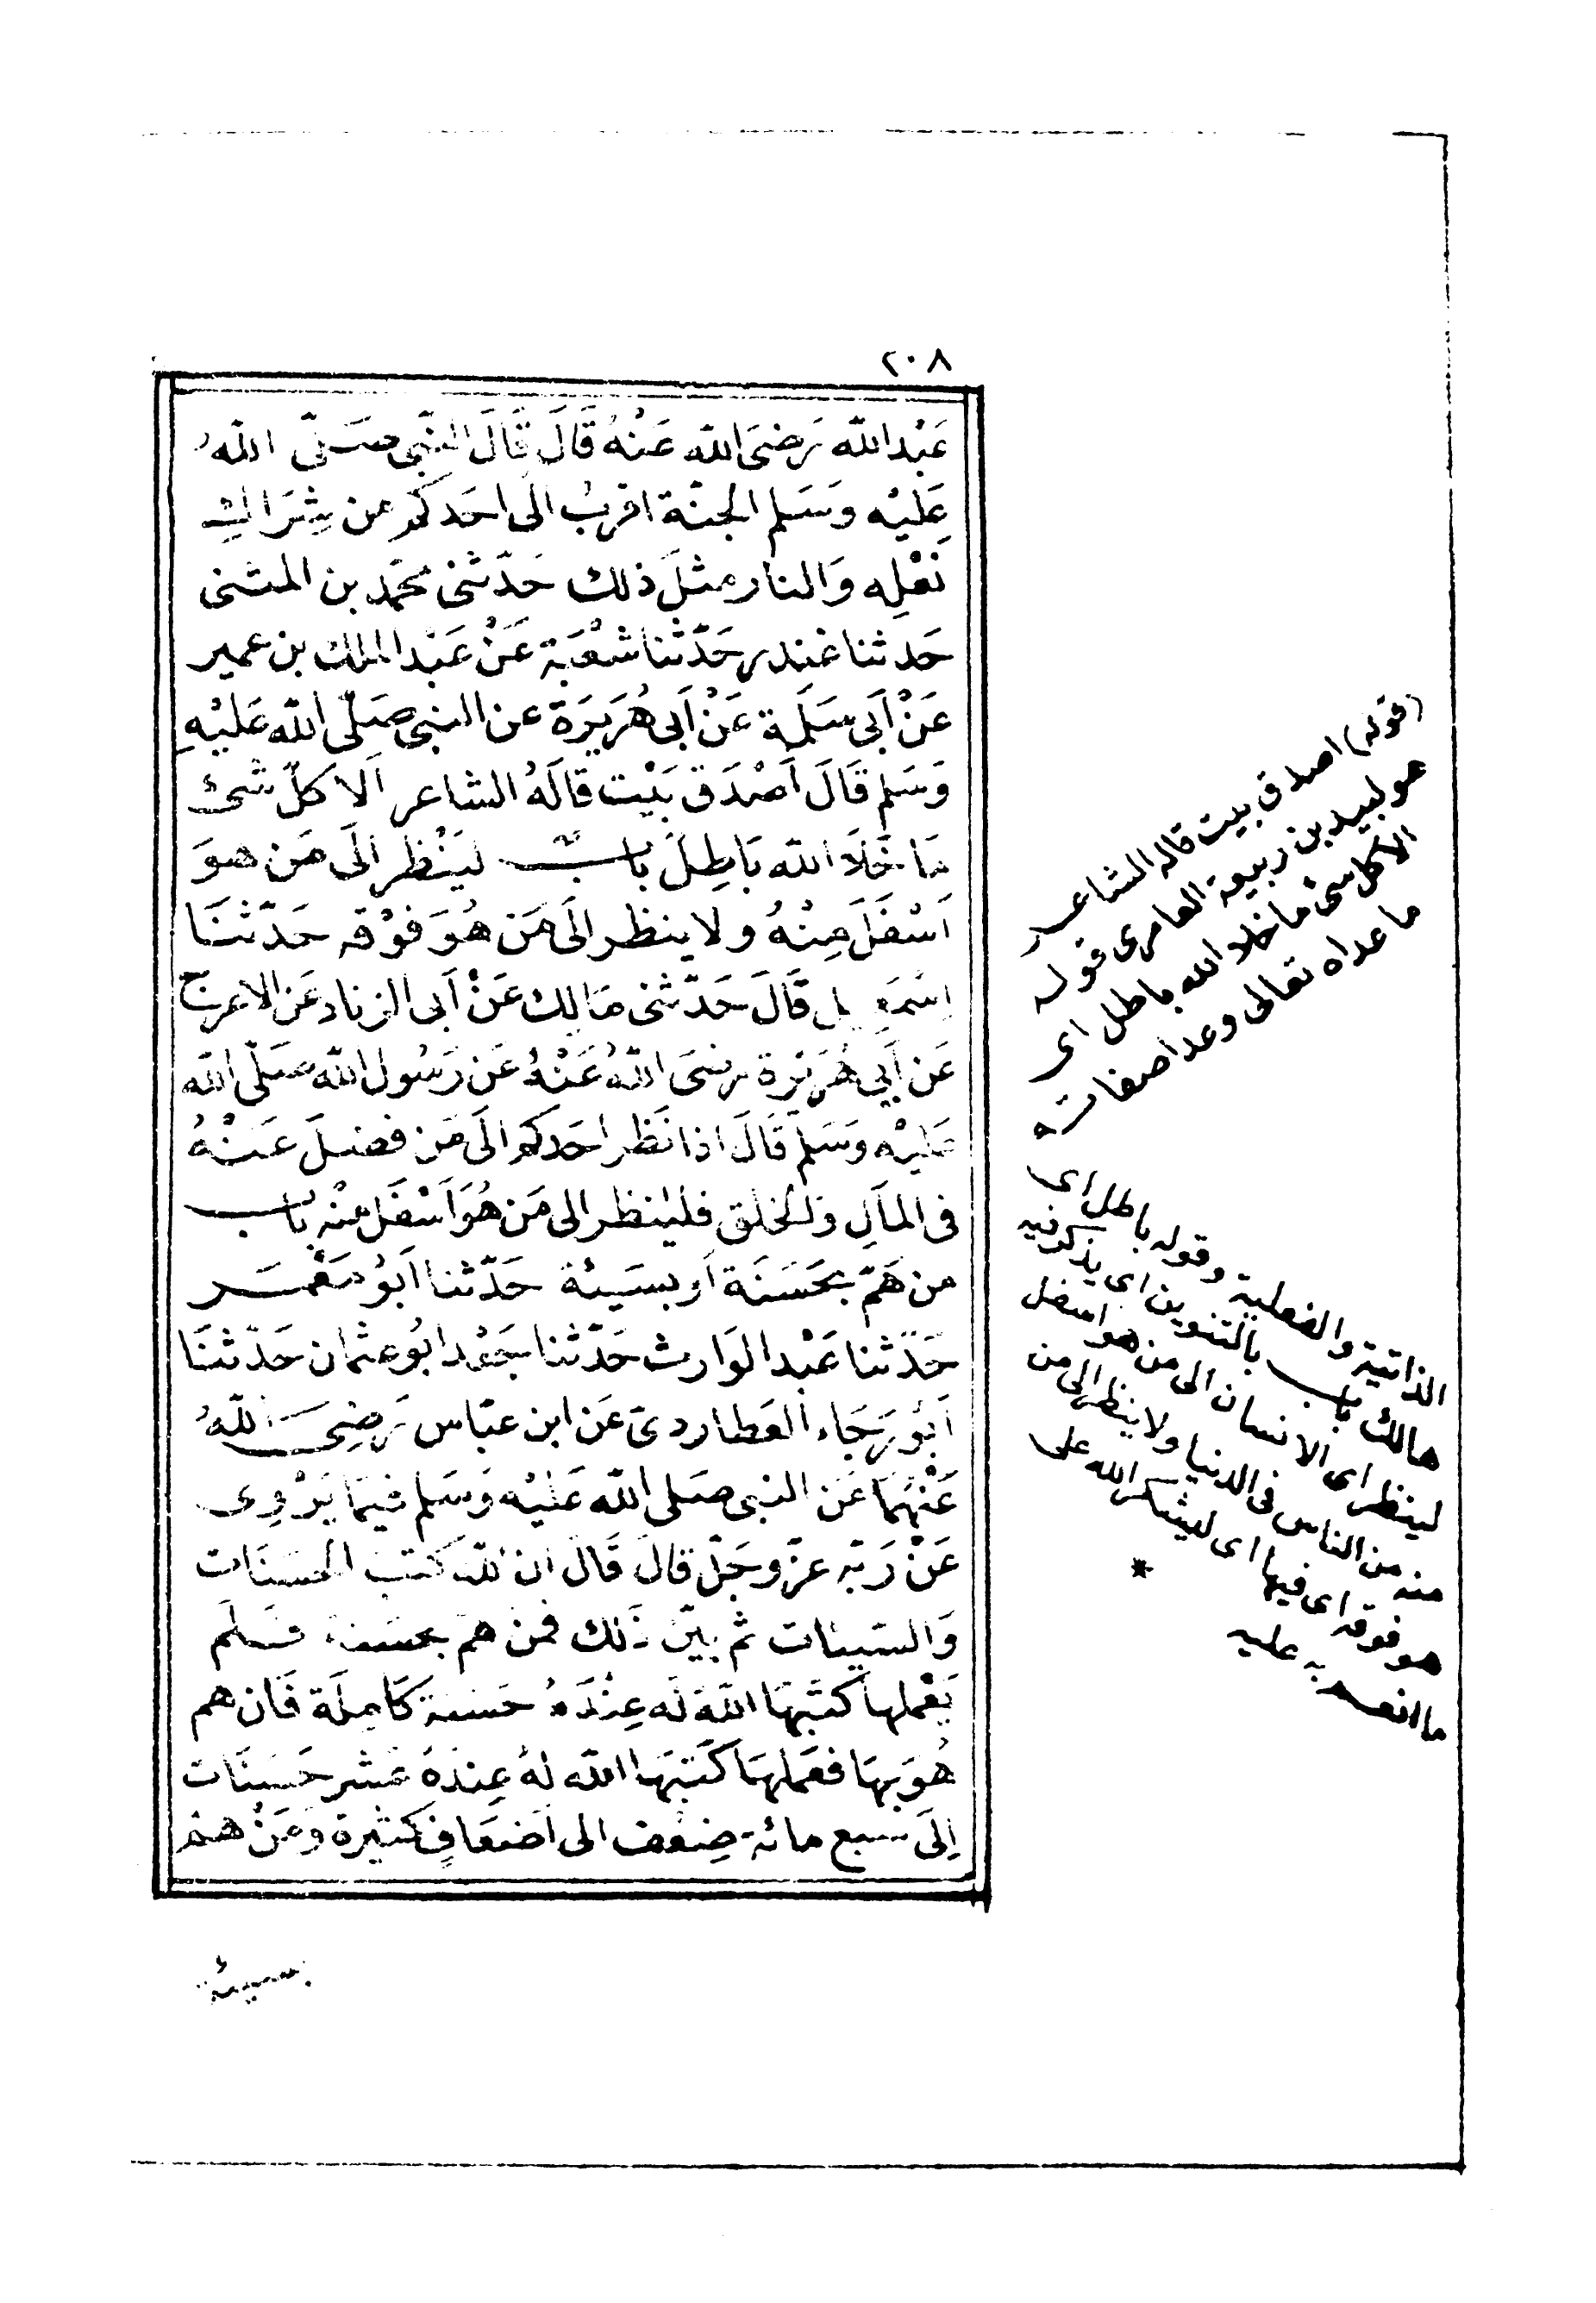 ٢٠٨
عَبْدِ اللّٰه رَضِىَ اللّٰه عَنْهُ قَالَ قَالَ النَّبِى صَلَّى اللّٰهُ
عَلَيْه وَسَلم الجنَّة اقربُ الى احَدكم من شِرَاكِ
نَعْلِه وَالنار مثلَ ذلك حَدّثنى محمّد بن المثنى
حَدثنا غندر حَدّثنا شعْبَة عَنْ عَبْد الملك بن عمير
عَنْ أَبى سَلمَة عَنْ أَبى هُرَيرَة عن النبى صَلّى اللّٰه عَليْهِ
وَسَلم قَالَ أَصْدَق بَيْت قالَهُ الشاعر اَلا كلّ شئ
مَا خَلَا اللّٰه بَاطِلَ بابٌ لينْظر الَى مَن هوَ
اَسْفَلَ مِنْهُ ولا ينظر الَى مَن هُوَ فوْقه حَدّثنَا
اسْمَعِيل قَالَ حَدّثنى مَالِك عَنْ أَبى الزناد عَن الاعرج
عَن أَبِي هُرَيْرَة رضىَ اللّٰهُ عَنْهُ عَن رَسُول اللّٰه صَلّى اللّٰه
عَليْه وَسَلم قَالَ اذا نَظر احَدكم الَى مَن فضلَ عَلَيْهُ
فى المَالِ وَالخلق فليَنظر الى مَن هُوَ اَسْفَل مِنْه باب
من هَمّ بحَسَنَة اَو بسَيئة حَدّثنا اَبُو مَعْمَر
حَدّثنا عَبْد الوَارث حَدّثنا جَعْد ابُو عثمان حَدّثنَا
اَبُو رَجَاء العَطاردىّ عَن ابن عبّاس رَضِىَ اللّٰهُ
عَنْهُمَا عَن النبى صَلى اللّٰه عَليْه وَسَلم فيمَا يَرْوِى
عَنْ رَبّه عزّ وجَلّ قالَ قَالَ ان اللّٰه كتبَ الحسَنَات
وَالسّيئات ثم بيّن ذَلك فمن همّ بحسَنة فَلَم
يَعْملها كتَبَهَا اللّٰهَ لَه عِنْدَهُ حَسَنة كَامِلَة فَان هم
هُوَ بهَا فعَملهَا كَتَبَهَا اللّٰه لهُ عِندَهُ عَشر حَسَنَات
اِلَى سبع مائة ضِعْف الى اَضعَافٍ كثيرة وَمَنْ همّ
بسيئة
(قوله) اصدق بيت قاله الشاعر
هو لبيد بن ربيعة العامرى قوله
الا كل شئ ما خلا الله باطل اى
ما عداه تعالى وعدا صفاته
الذاتية والفعلية وقوله باطل اى
هالك باب بالتنوين اى يذكر فيه
لينظر اى الانسان الى من هو اسفل
منه من الناس فى الدنيا ولا ينظر الى من
هو فوقه اى فيها اى ليشكر الله على
ما انعم به عليه
*